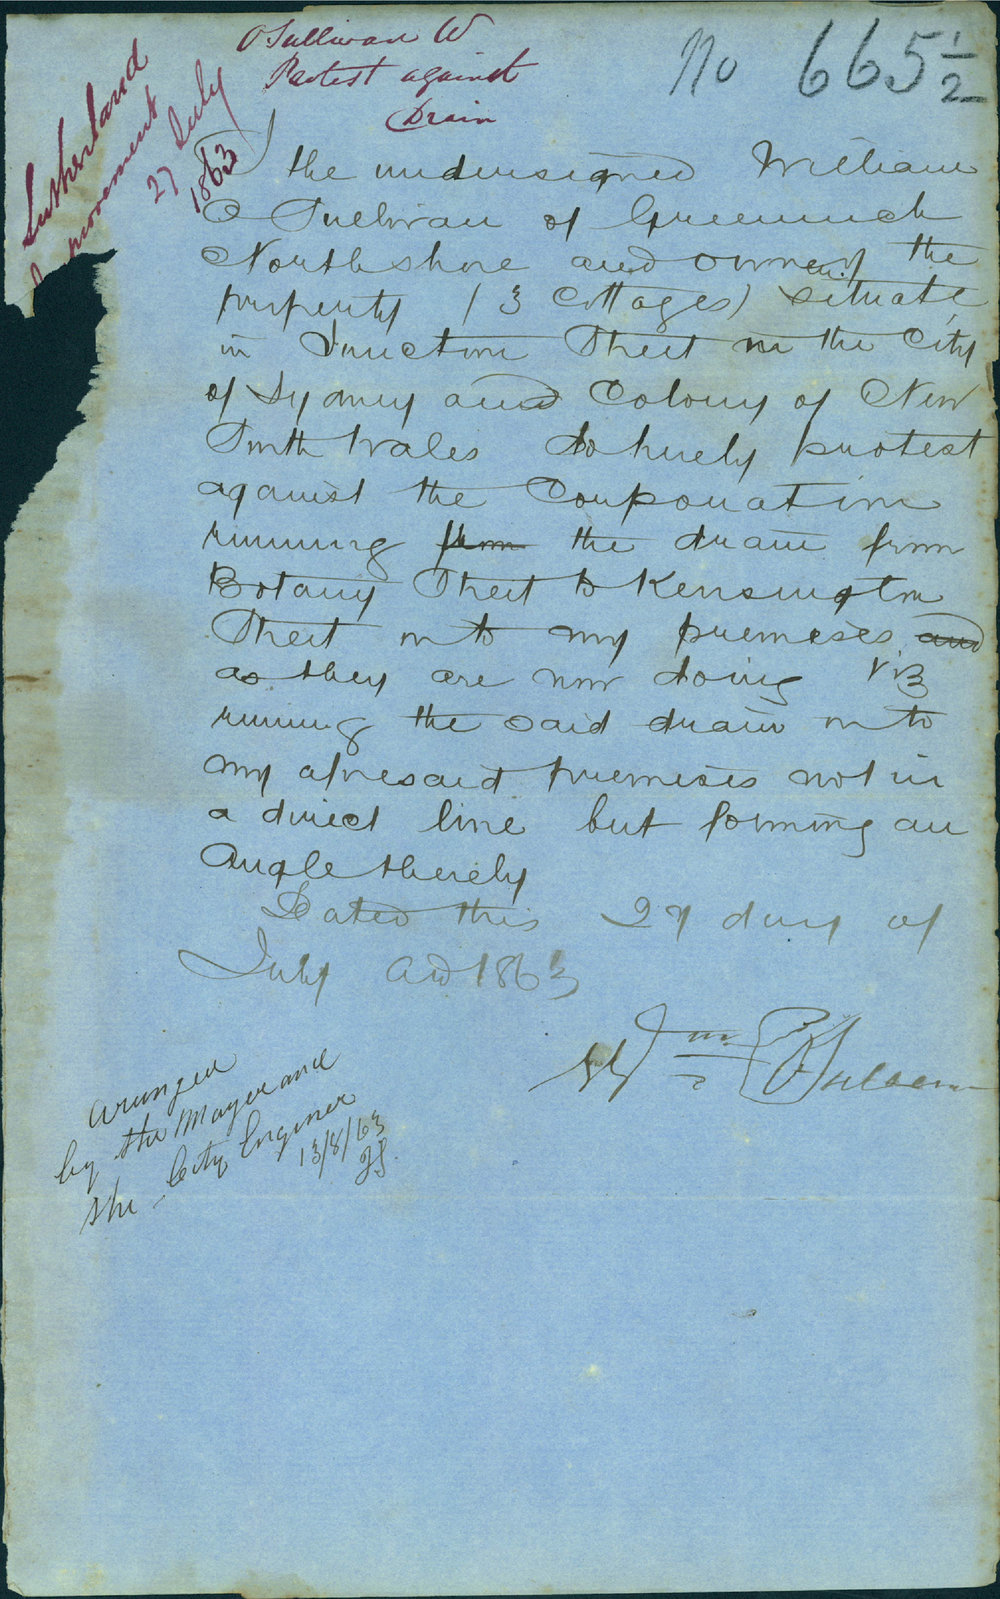 O'Sullivan W
Protest against
Drain
No 665 1/2
Sutherland
Improvement
27 July
1863
I the undersigned William
O Sullivan of Greenwich
North shore and owner of the
property (3 Cottages) situate
in Junction Street in the City
of Sydney and Colony of New
South Wales do hereby protest
against the Corporation
running from the drain from
Botany Street to Kensington
Street on to my premises and
as they are now doing viz
running the said drain on to
my aforesaid premises not in
a direct line but forming an
Angle thereby
Dated this 27 day of
July AD 1863
Wm O'Sullivan
Arranged
by the Mayor and
the City Engineer
13/8/63